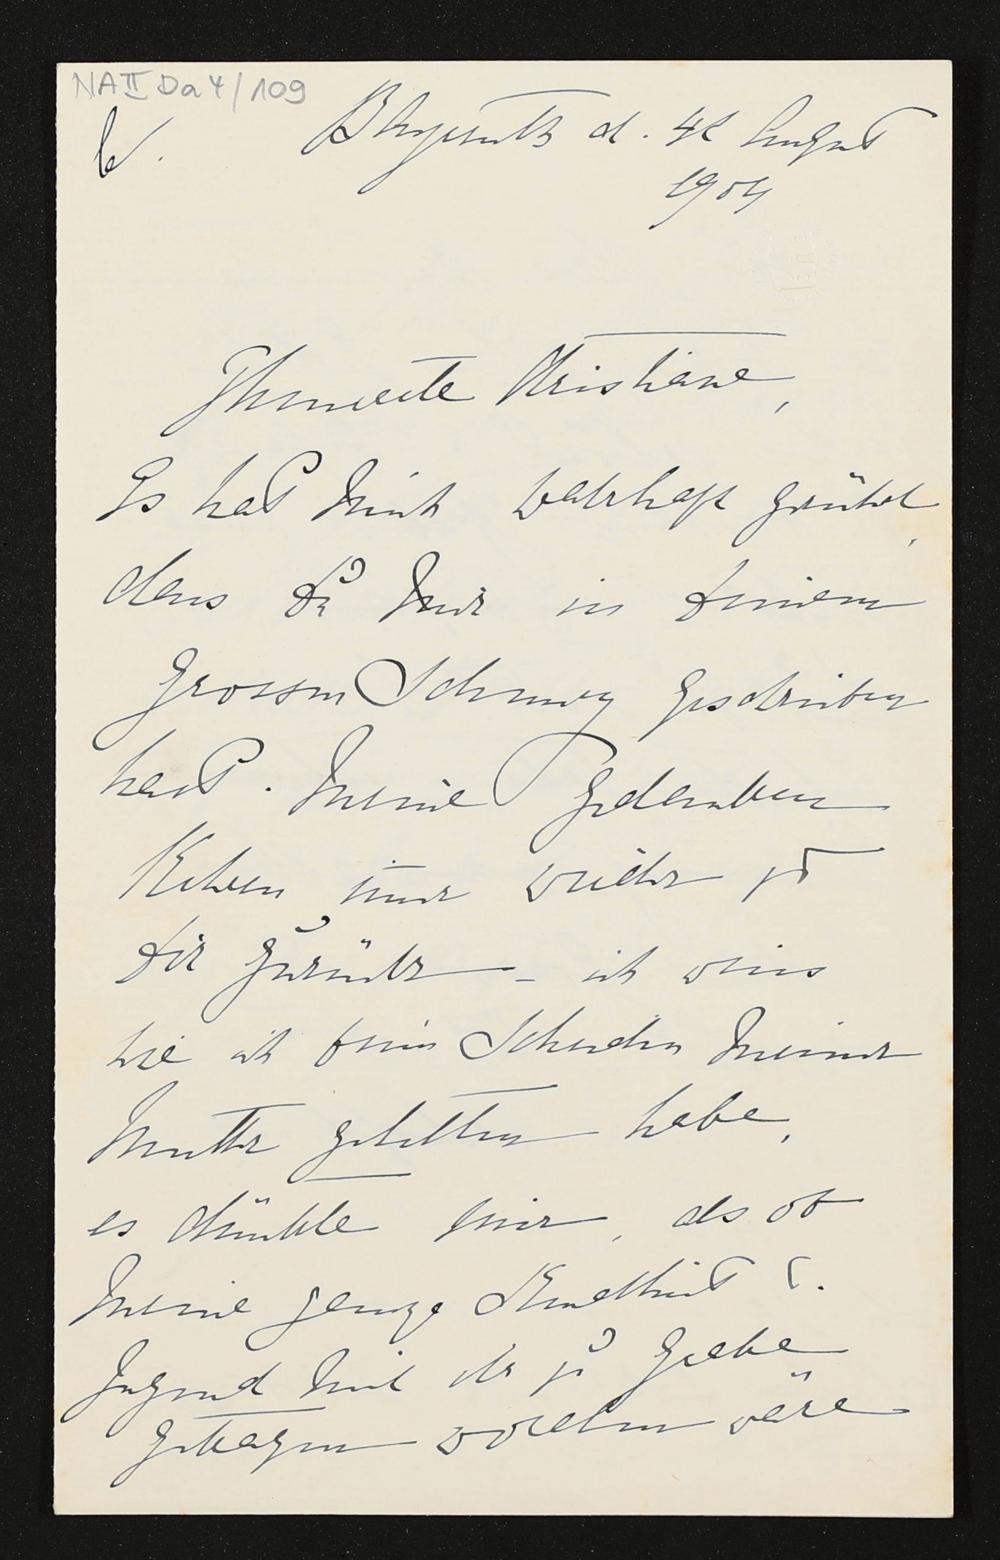 NA II Da 4/109
Bayreuth d. 4t August
1904
Theuerste Christiane,
Es hat mich wahrhaft gerührt,
dass Du mir in Deinem
grossen Schmerz geschrieben
hast. Meine Gedanken
kehren immer wieder zu
Dir zurück – ich weiss
wie ich beim Scheiden meiner
Mutter gelitten habe,
es dünkte mir, als ob
meine ganze Kindheit u.
Jugend mit ihr zu Grabe
getragen worden wäre